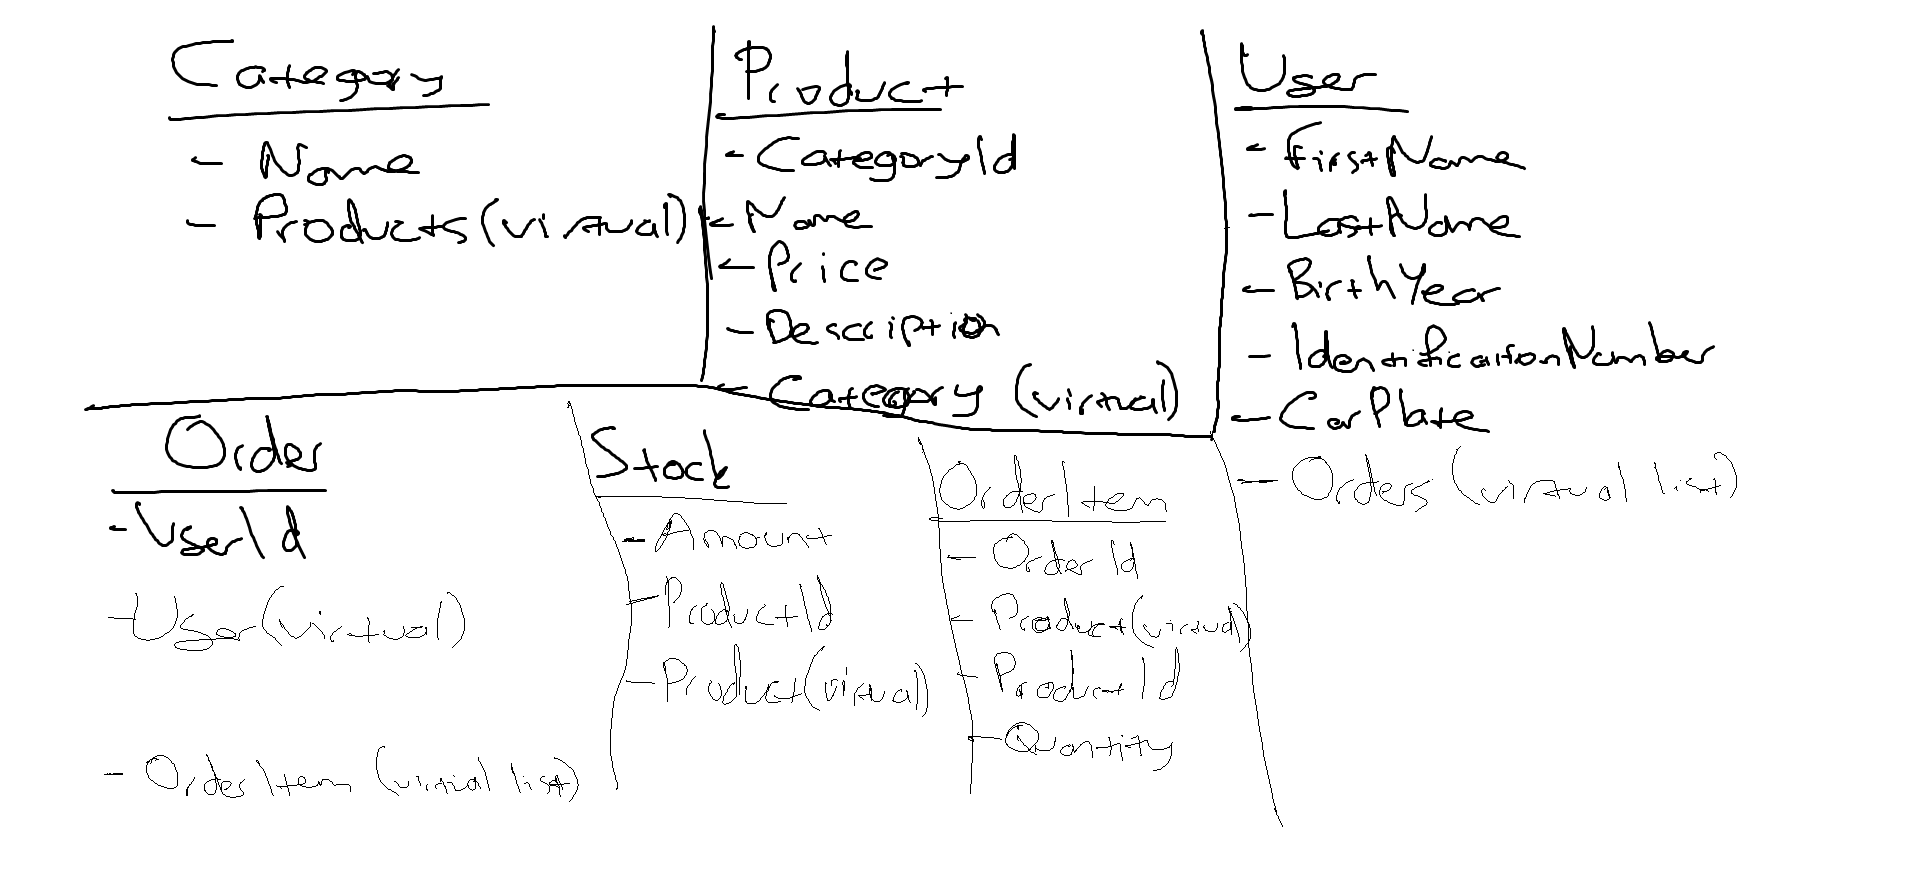 Category
- Name
- Products (virtual)
Product
- CategoryId
- Name
- Price
- Description
- Category (virtual)
User
- FirstName
- LastName
- BirthYear
- IdentificationNumber
- CarPlate
- Orders (virtual list)
Order
- UserId
- User (virtual)
- OrderItem (virtual list)
Stock
- Amount
- ProductId
- Product (virtual)
OrderItem
- OrderId
- Product (virtual)
- ProductId
- Quantity